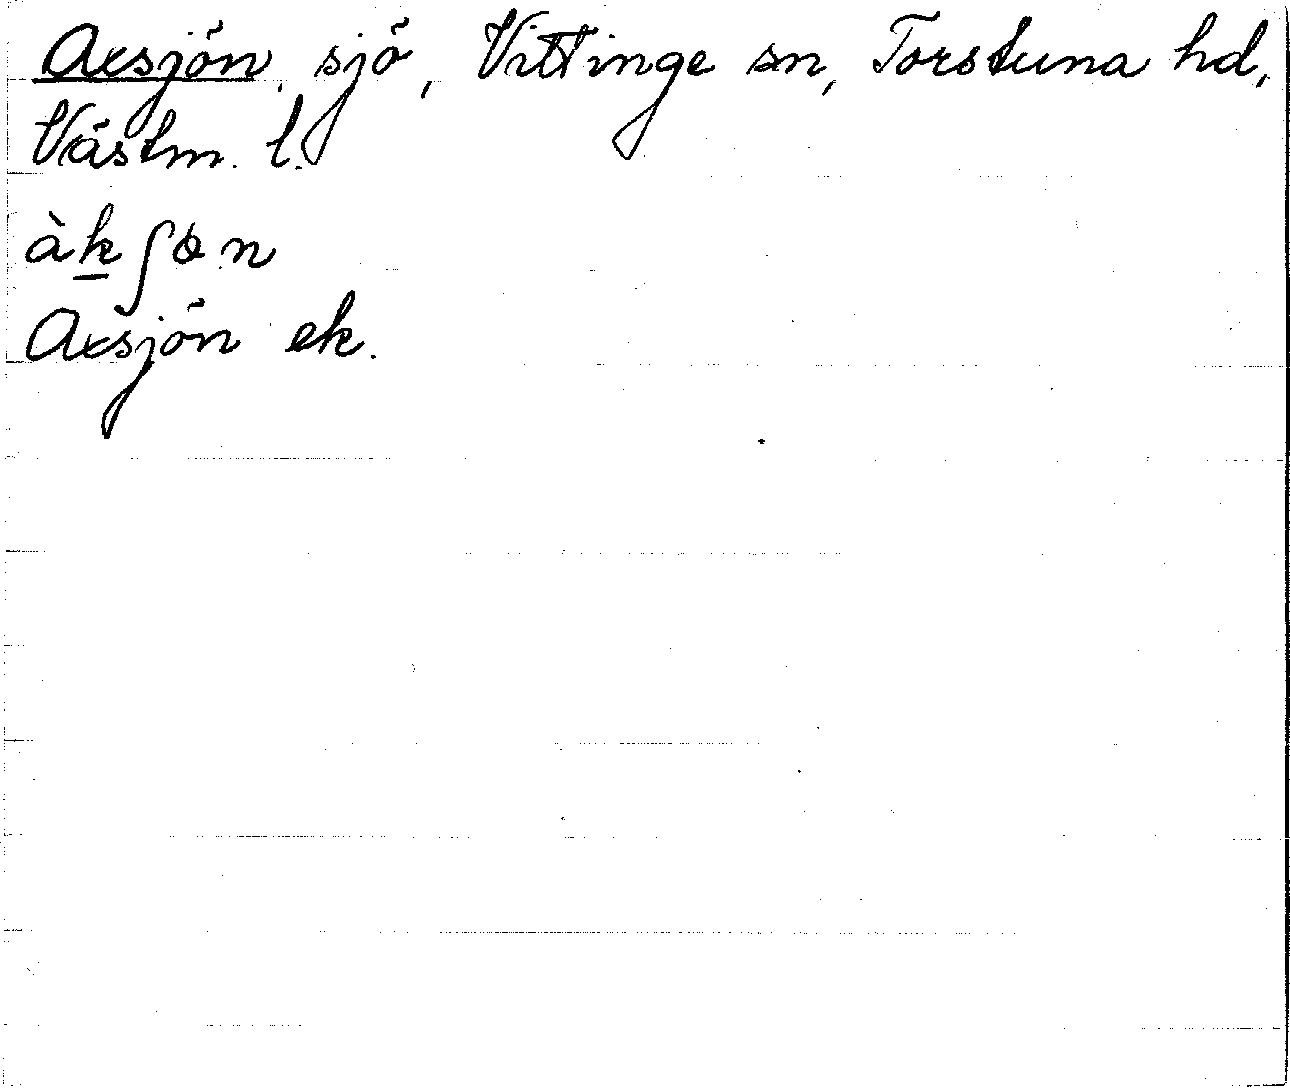 Axsjön, sjö, Vittinge sn, Torstuna hd,
Västm. l.
àk̲ʃɵn
Axsjön ek.